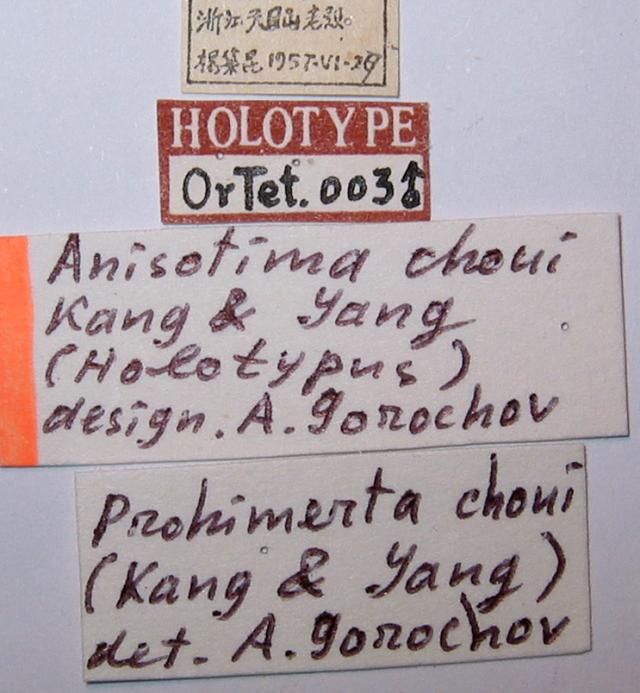 浙江天目山老殿
楊集昆 1957-VI-29
HOLOTYPE
OrTet.003♂
Anisotima choui
Kang & Yang
(Holotypus)
design. A. Gorochov
Prohimerta choui
(Kang & Yang)
det. A. Gorochov